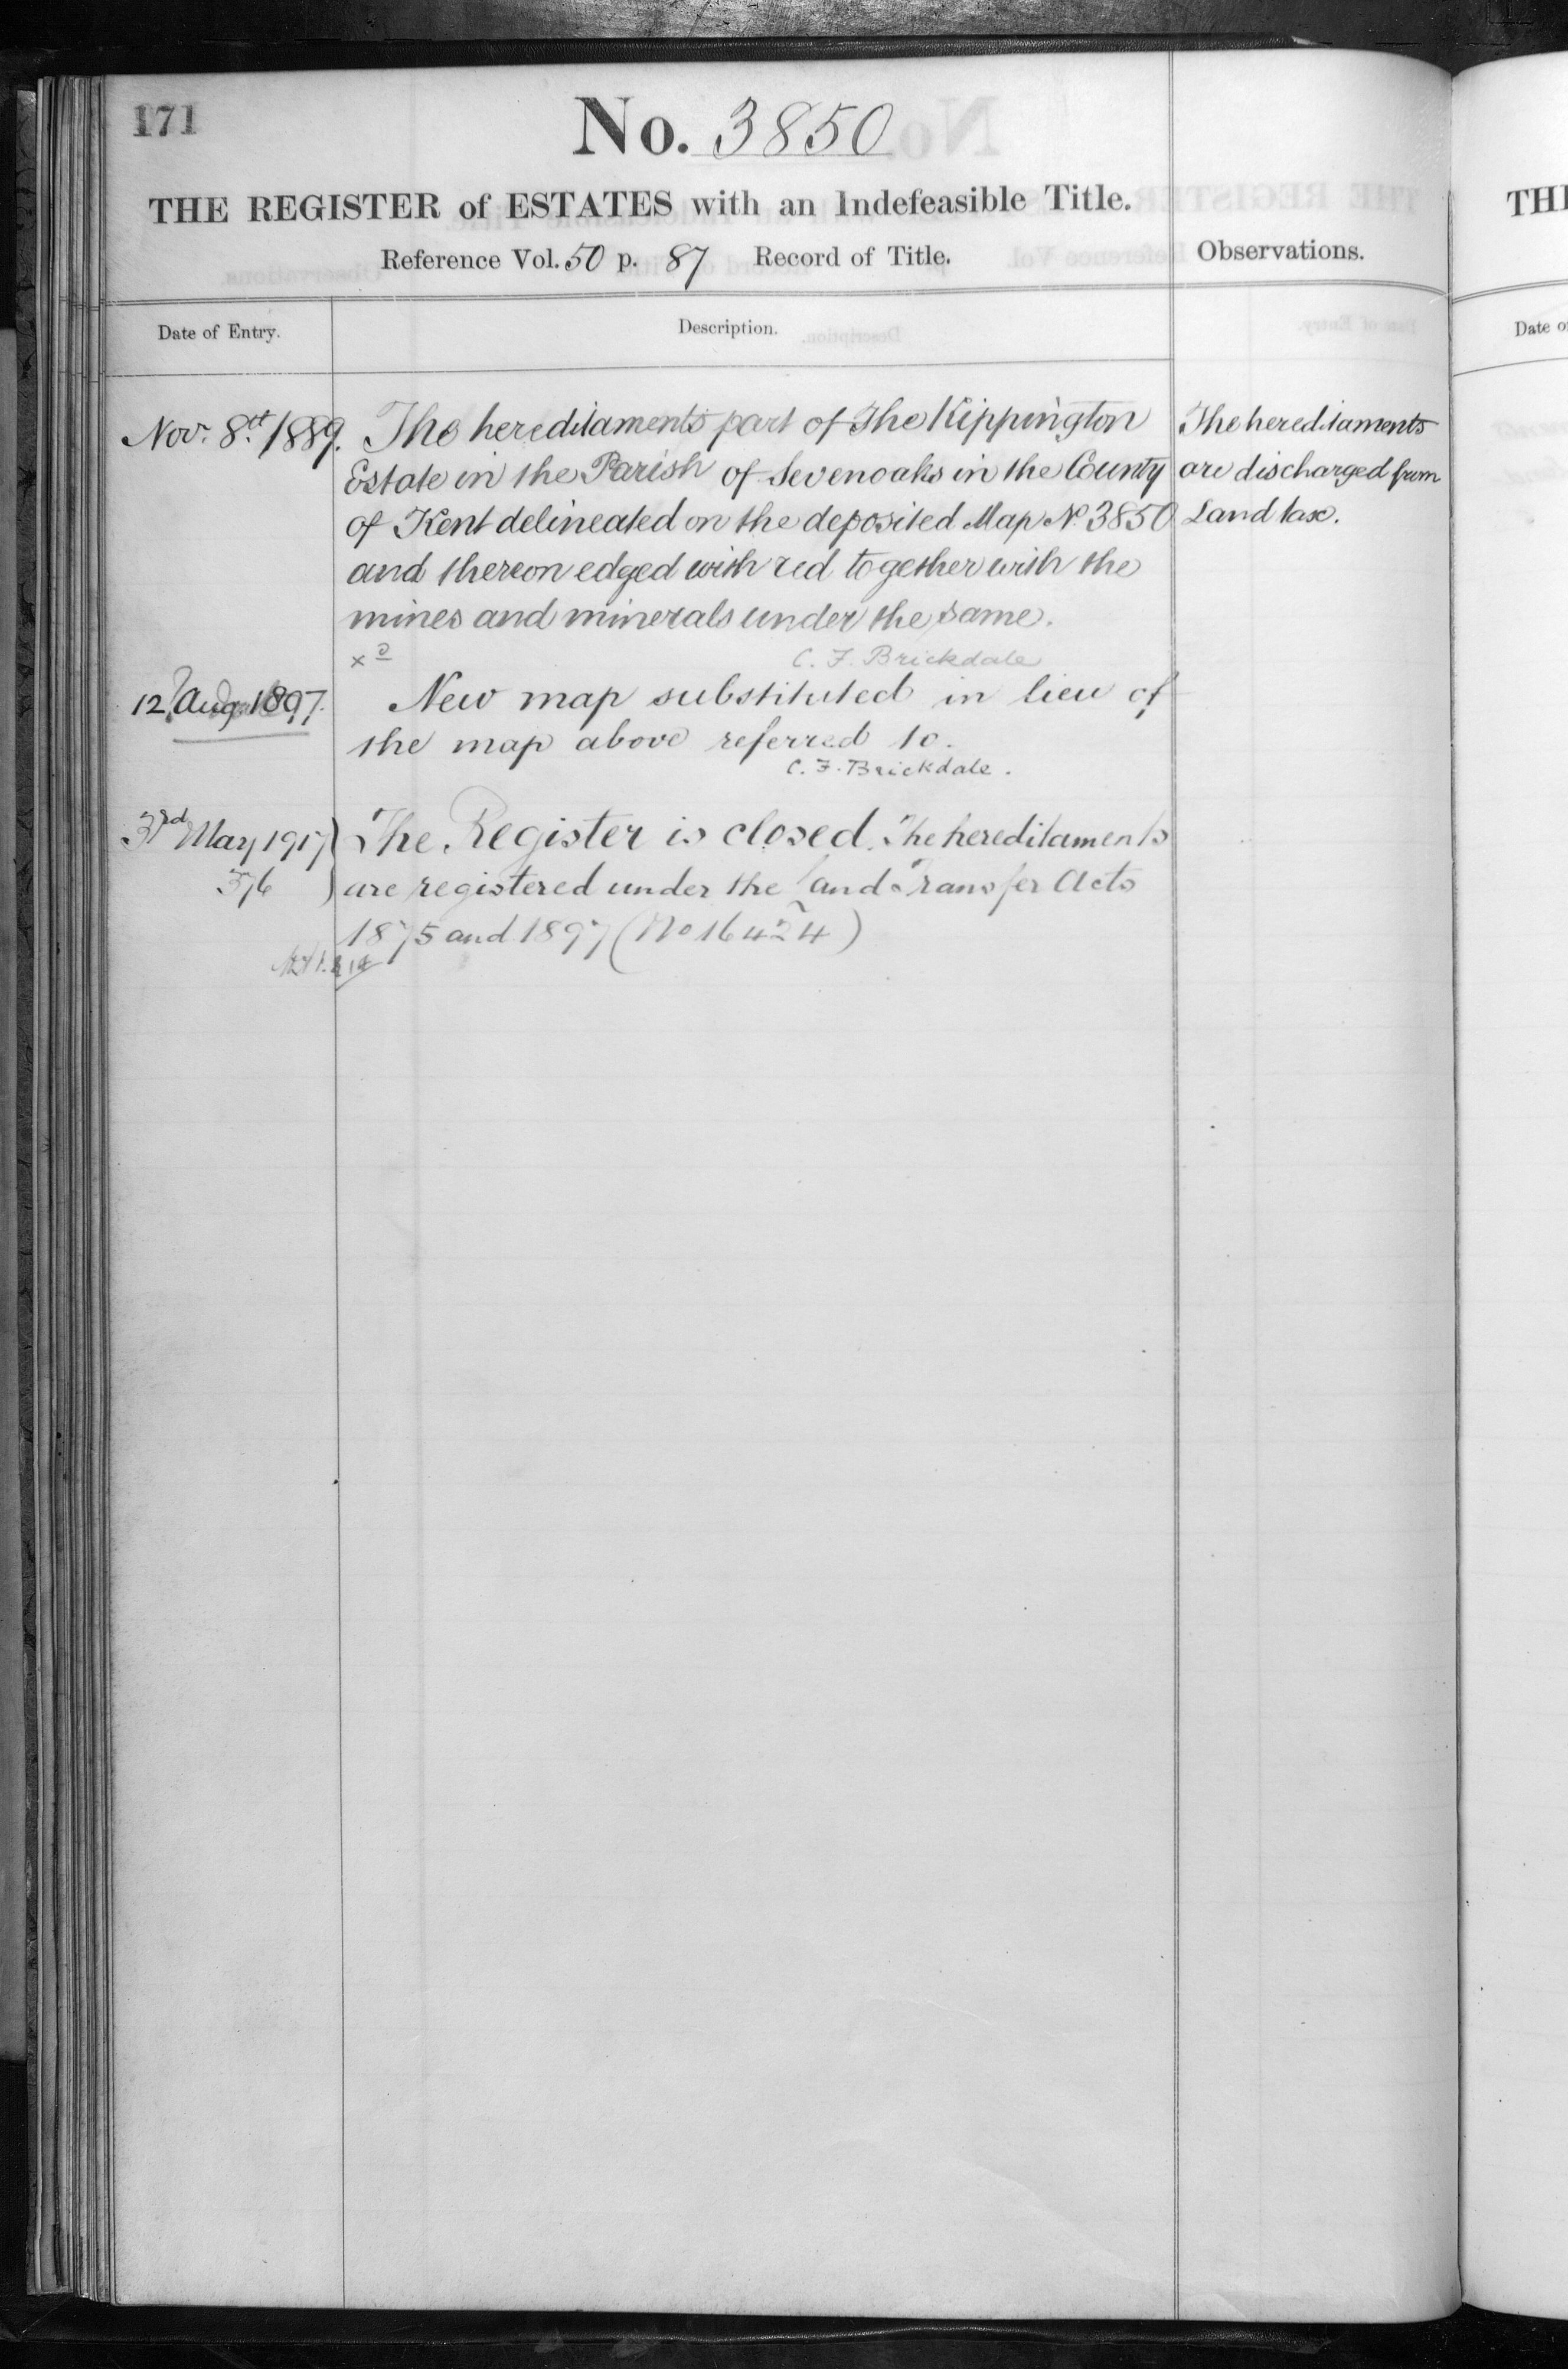 171
No. 3850
THE REGISTER of ESTATES with an Indefeasible Title.
Reference Vol. 50 p. 87 Record of Title.
Observations.
Date of Entry.
Description.
Nov. 8th 1889.
The hereditaments part of The Kippington
Estate in the Parish of Sevenoaks in the County
of Kent delineated on the deposited Map No. 3850
and thereon edged with red together with the
mines and minerals under the same.
The hereditaments
are discharged from
Land tax.
C. F. Brickdale
12 Aug. 1897.
New map substituted in lieu of
the map above referred to.
C. F. Brickdale.
3rd May 1917
376
The Register is closed. The hereditaments
are registered under the Land Transfer Acts
1875 and 1897 (No 16424)
TH
Date o